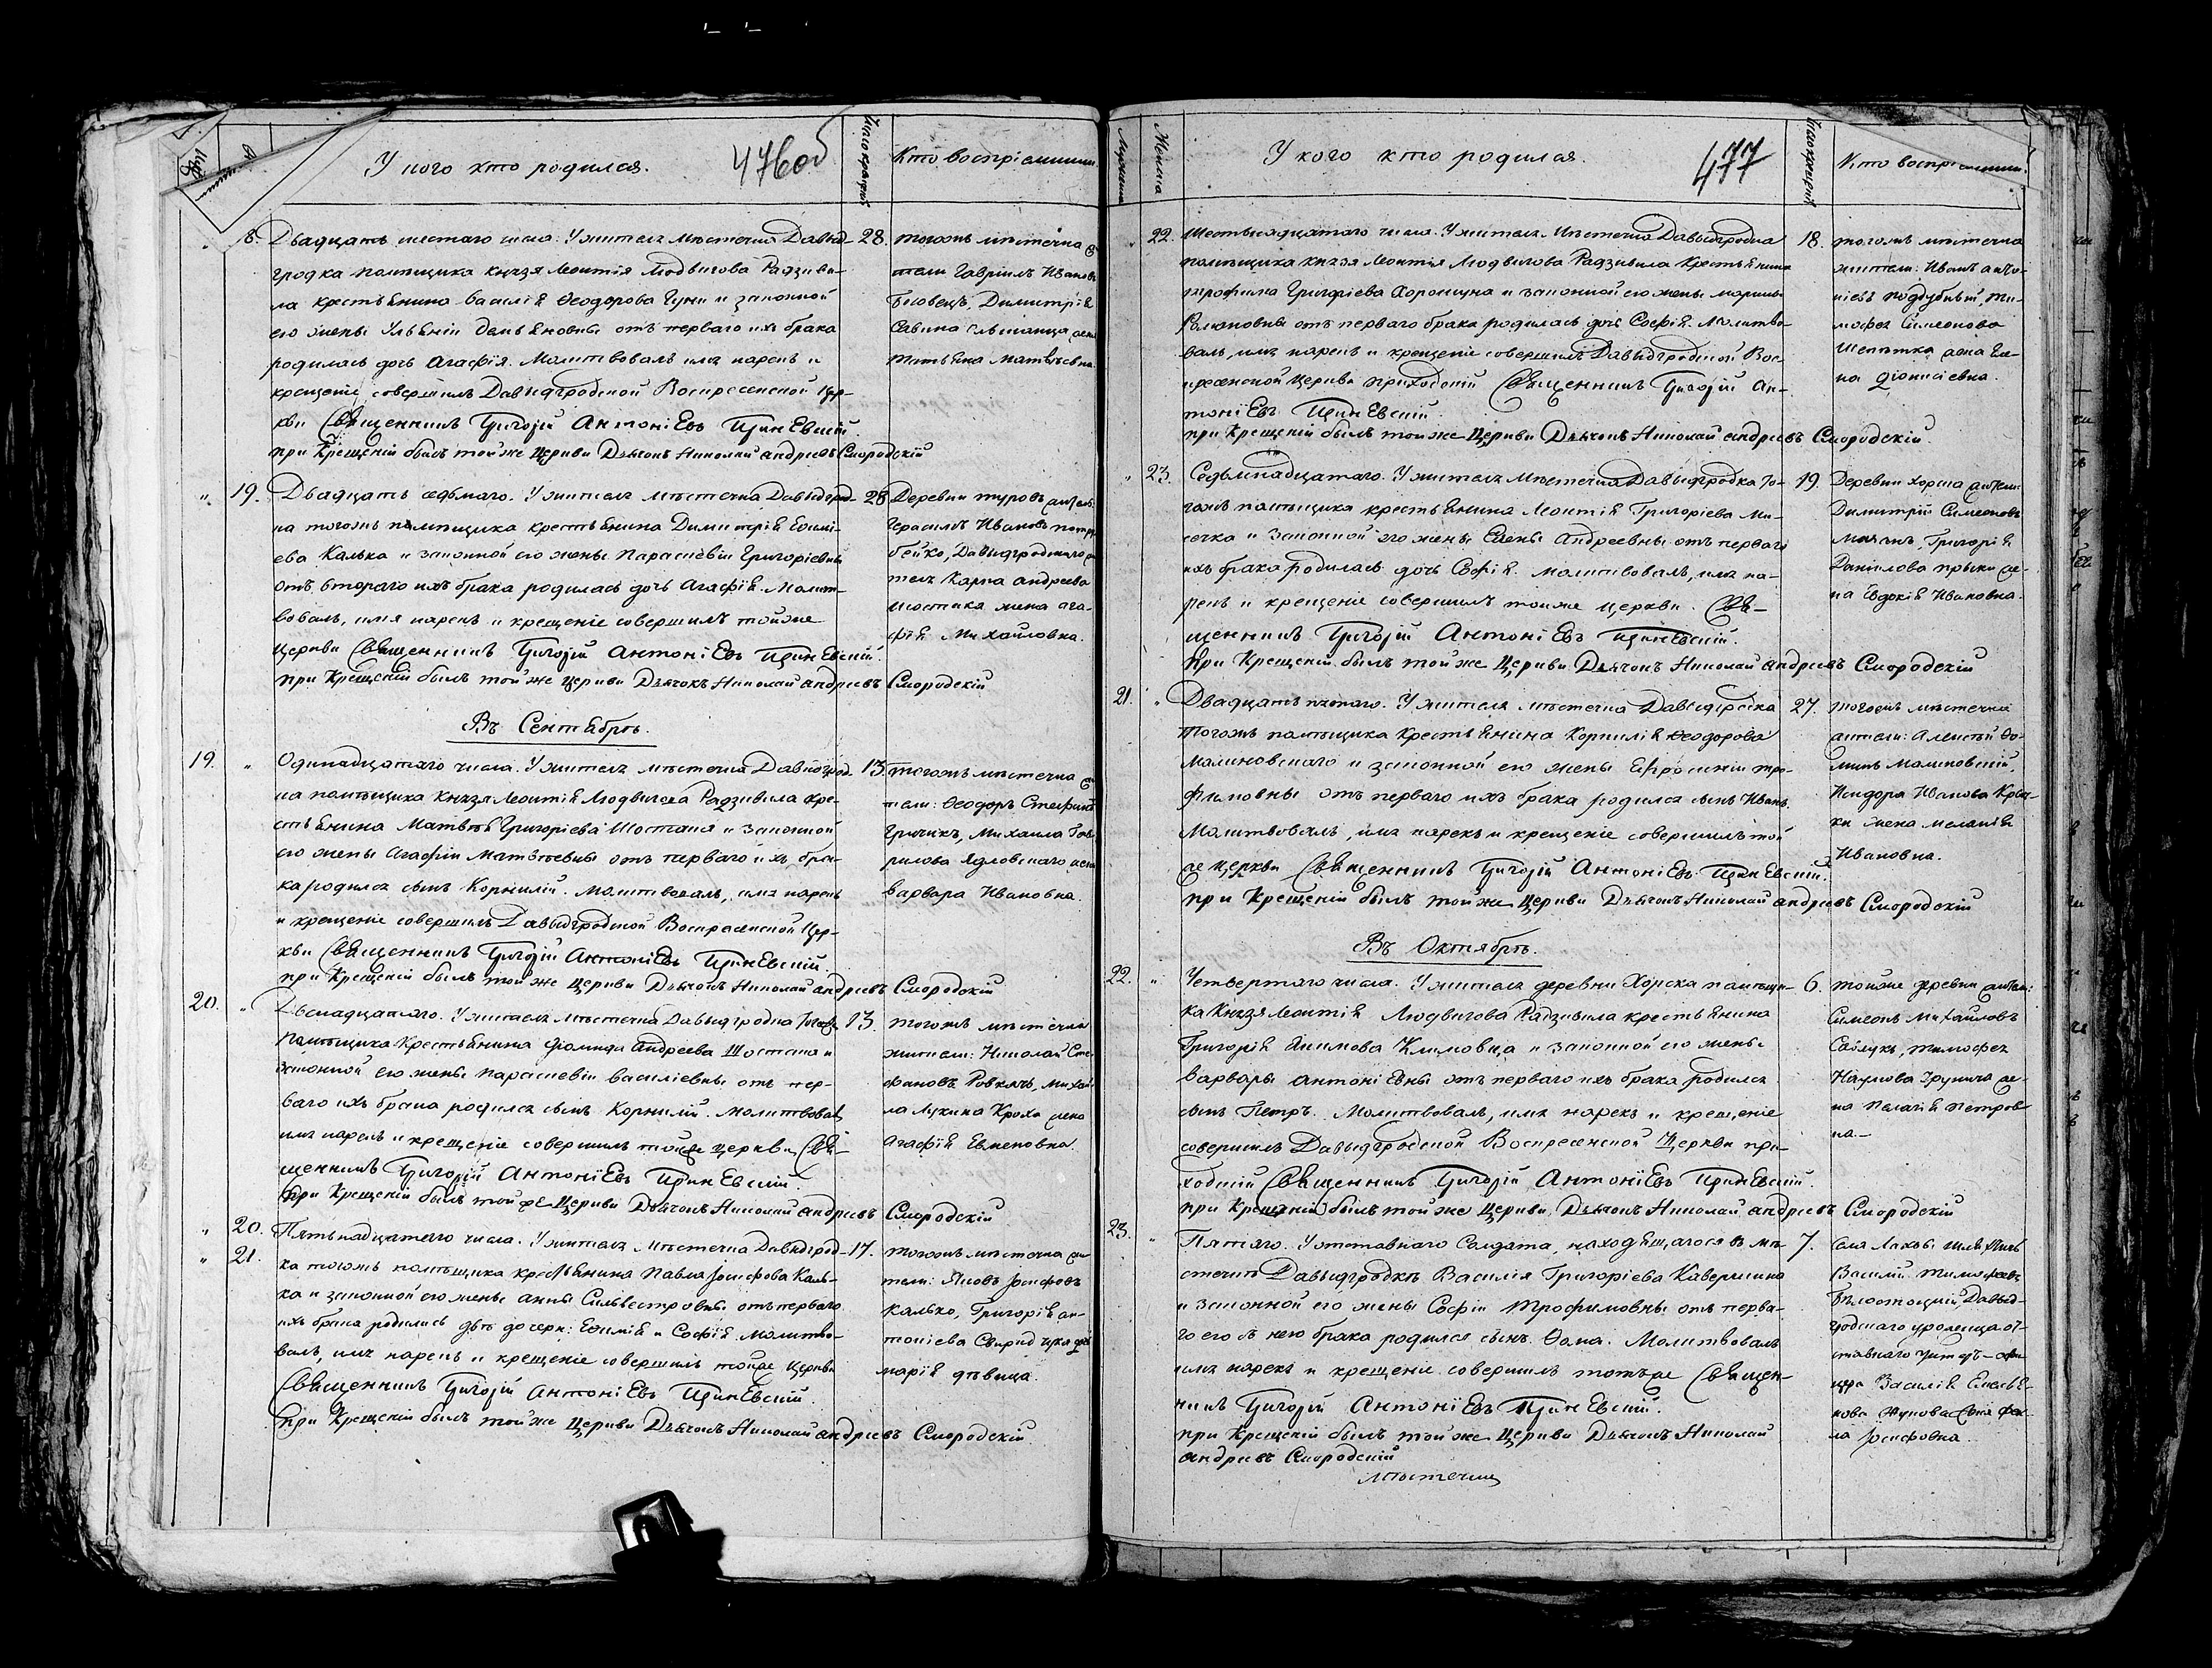 У кого кто родился.
476об
Число крещенія
Кто воспріемники.
18. Двадцать шестаго числа. У жителя мѣстечка Давыд-
городка помѣщика князя Леонтія Людвигова Радзиви-
ла крестьянина Василія Ѳеодорова и законной
его жены Ульянiи Демьяновны отъ перваго ихъ брака
родилась дочь Агафія. Молитвовалъ имя нарекъ и
крещеніе совершилъ Давыдгродской Воскресенской Цер-
кви Священникъ Григорій Антоніевъ
при Крещеніи былъ тойже Церкви Дьячокъ Николай Андреевъ Смородскій
28. тогожъ мѣстечка
жители Гавріилъ Ивановъ
Димитрія
Савина жена
Татьяна Матвѣевна
„ 19. Двадцать седьмаго. У жителя мѣстечка Давыдгрод-
ка тогожъ помѣщика крестьянина Димитрія Еѳимі-
ева Калька и законной его жены Параскевіи Григоріевны
отъ втораго ихъ брака родилась дочь Агафія. Молит-
вовалъ, имя нарекъ и крещеніе совершилъ тойже
церкви Священникъ Григорій Антоніевъ
при Крещеніи былъ тойже церкви Дьячокъ Николай Андреевъ Смородскій
28 Деревни Туровъ житель
Герасимъ Ивановъ
Давыдгродскаго жи-
тель Карпа Андреева
Шостака жена Ага-
фія Михайловна.
Въ Сентябрѣ.
19. „ Одинадцатаго числа. У жителя мѣстечка Давыдгрод-
ка помѣщика Князя Леонтія Людвигова Радзивила кре-
стьянина Матвѣя Григоріева Шостака и законной
его жены Агафіи Матвѣевны отъ перваго ихъ бра-
ка родился сынъ Корнилій. Молитвовалъ, имя нарекъ
и крещеніе совершилъ Давыдгродской Воскресенской Цер-
кви Священникъ Григорій Антоніевъ
при Крещеніи былъ тойже церкви Дьячокъ Николай Андреевъ Смородскій
13. тогожъ мѣстечка жи-
тели: Ѳеодоръ Стефановъ
Гричикъ, Михаила Гав-
рилова Ядловскаго жена
Варвара Ивановна.
20. „ Двенадцатаго. У жителя мѣстечка Давыдгродка тогожъ
помѣщика Крестьянина Андреева Шостака и
законной его жены Параскевіи Василіевны отъ пер-
ваго ихъ брака родился сынъ Корнилій. Молитвовалъ,
имя нарекъ и крещеніе совершилъ тойже церкви Свя-
щенникъ Григорій Антоніевъ
при Крещеніи былъ тойже Церкви Дьячокъ Николай Андреевъ Смородскій
13. тогожъ мѣстечка
жители: Николай Сте-
фановъ Михай-
ла Лукина Кроха жена
Агафія Евменовна.
„ 20. Пятьнадцатаго числа. У жителя Мѣстечка Давыдгрод-
„ 21. ка тогожъ помѣщика крестьянина Павла Іосифова Каль-
ка и законной его жены Анны Сильвестровны отъ перваго
ихъ брака родились двѣ дочери: Еѳимія и Софія. Молитво-
валъ, имя нарекъ и крещеніе совершилъ тойже Церкви
Священникъ Григорій Антоніевъ
при Крещеніи былъ тойже Церкви Дьячокъ Николай Андреевъ Смородскій
17. тогожъ мѣстечка жи-
тели: Яковъ Іосифовъ
Калько, Григорія Ан-
тоніева
Марія дѣвица.
Мужеска
Женска
У кого кто родился.
477
Число крещенія
Кто воспріемники.
„ 22. Шестьнадцатаго числа. У жителя Мѣстечка Давыдгродка
помѣщика князя Леонтія Людвигова Радзивила Крестьянина
Трофима Григоріева Хоромцка и законной его жены Марины
отъ перваго брака родилась дочь Софія. Молитво-
валъ, имя нарекъ и крещеніе совершилъ Давыдгродской Вос-
кресенской Церкви приходскій Священникъ Григорій Ан-
тоніевъ
при Крещеніи былъ тойже Церкви Дьячокъ Николай Андреевъ Смородскій
18. тогожъ мѣстечка
жители: Иванъ Анто-
ніевъ Поддубный, Ти-
мофея Симеонова
жена Еле-
на Діонисіевна.
„ 23. Седьмнадцатаго. У жителя Мѣстечка Давыдгродка то-
гожъ помѣщика крестьянина Леонтія Григоріева Ми-
сечка и законной его жены Елены Андреевны отъ перваго
ихъ брака родилась дочь Софія. Молитвовалъ, имя на-
рекъ и крещеніе совершилъ тойже церкви Свя-
щенникъ Григорій Антоніевъ
при Крещеніи былъ тойже Церкви Дьячокъ Николай Андреевъ Смородскій
19. Деревни Хорска жители
Димитрій Симеоновъ
Григорія
Даніилова же-
на Евдокія Ивановна.
21. „ Двадцать пятаго. У жителя мѣстечка Давыдгродка
тогожъ помѣщика Крестьянина Корнилія Ѳеодорова
Малиновскаго и законной его жены Ефросиніи Тро-
фимовны отъ перваго ихъ брака родился сынъ Иванъ.
Молитвовалъ, имя нарекъ и крещеніе совершилъ той
же церкви Священникъ Григорій Антоніевъ
при Крещеніи былъ тойже Церкви Дьячокъ Николай Андреевъ Смородскій
27. тогожъ мѣстечка
жители: Алексѣй Ѳо-
минъ Малиновскій,
Исидора Иванова
жена Меланія
Ивановна.
Въ Октябрѣ.
22. „ Четвертаго числа. У жителя деревни Хорска помѣщи-
ка Князя Леонтія Людвигова Радзивила крестьянина
Григорія Акимова Климовца и законной его жены
Варвары Антоніевны отъ перваго ихъ брака родился
сынъ Петръ. Молитвовалъ, имя нарекъ и крещеніе
совершилъ Давыдгродской Воскресенской Церкви при-
ходскій Священникъ Григорій Антоніевъ
при Крещеніи былъ тойже Церкви Дьячокъ Николай Андреевъ Смородскій
6. тойже деревни жители:
Симеонъ Михайловъ
Тимофея
Наумова же-
на Пелагія Петров-
на.
23. „ Пятаго. У отставнаго Солдата, находящагося въ мѣ-
стечкѣ Давыдгродкѣ Василія Григоріева Каверзина
и законной его жены Софіи Трофимовны отъ перва-
го его съ нею брака родился сынъ Ѳома. Молитвовалъ
имя нарекъ и крещеніе совершилъ тотъже Священ-
никъ Григорій Антоніевъ
при Крещеніи былъ тойже Церкви Дьячокъ Николай
Андреевъ Смородскій
7. села
Василій Тимофеевъ
Давыд-
гродскаго от-
ставнаго Унтеръ-офи-
цера Василія
Фек-
ла Іосифовна.
мѣстечка